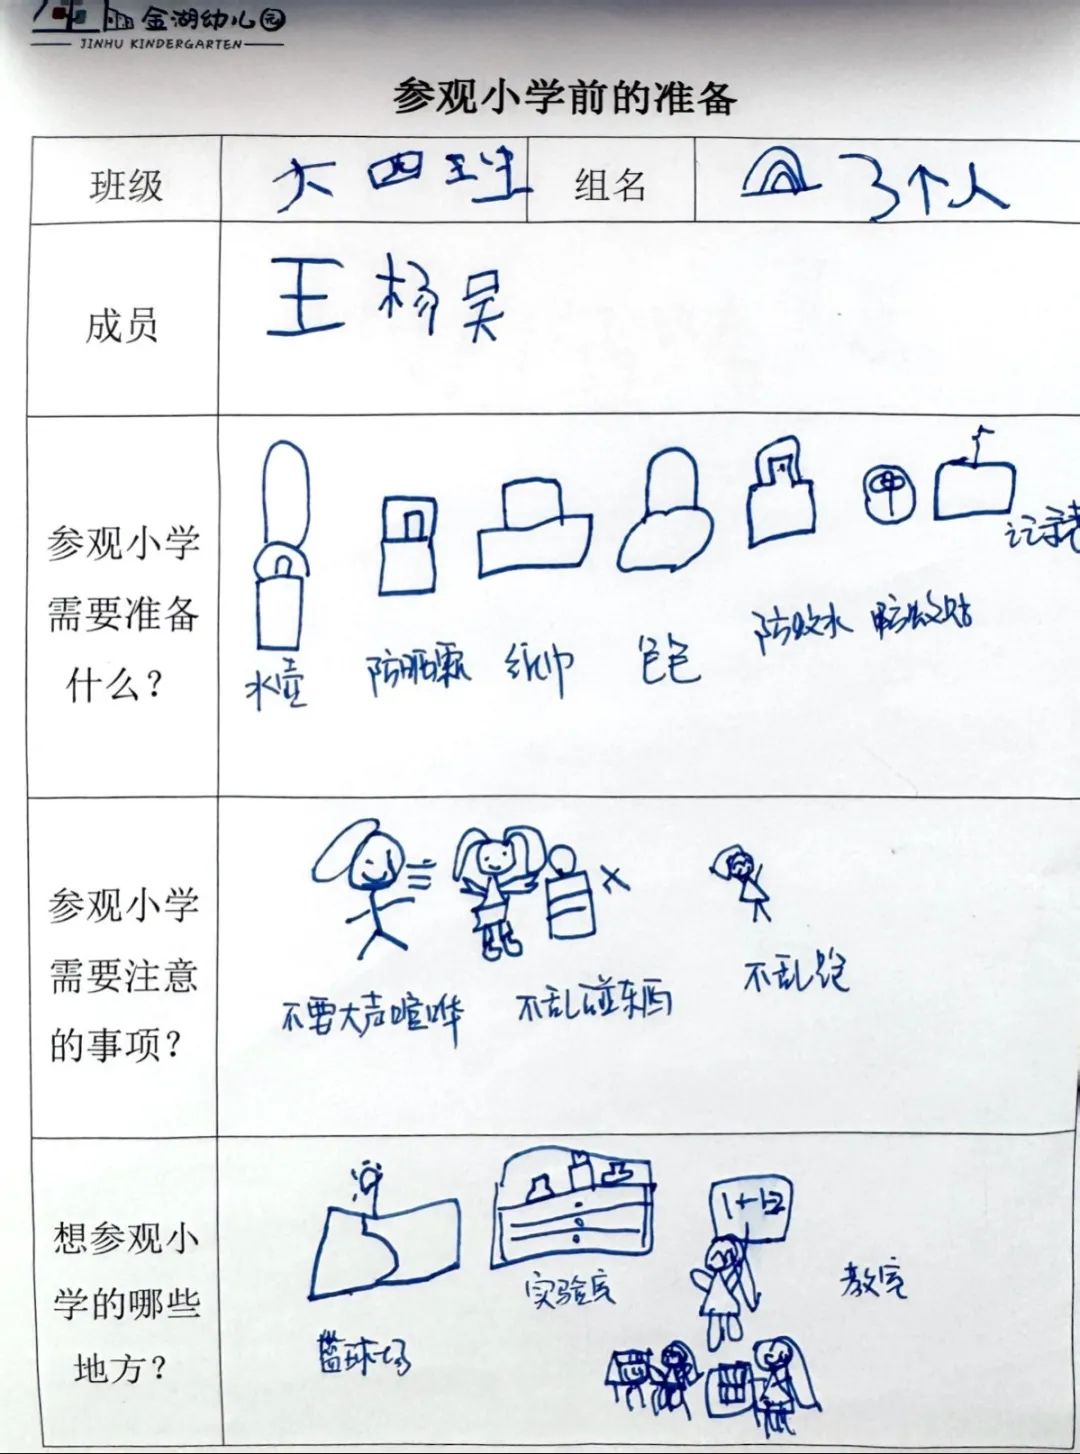 金湖幼儿园
JINHU KINDERGARTEN
参观小学前的准备
班级 大四班 组名 3个人
成员 王杨吴
参观小学
需要准备
什么？
水壶 防晒霜 纸巾 包包 防蚊水 防蚊贴 记录表
参观小学
需要注意
的事项？
不要大声喧哗 不乱碰东西 不乱跑
想参观小
学的哪些
地方？
1+1=
篮球场 实验室 教室